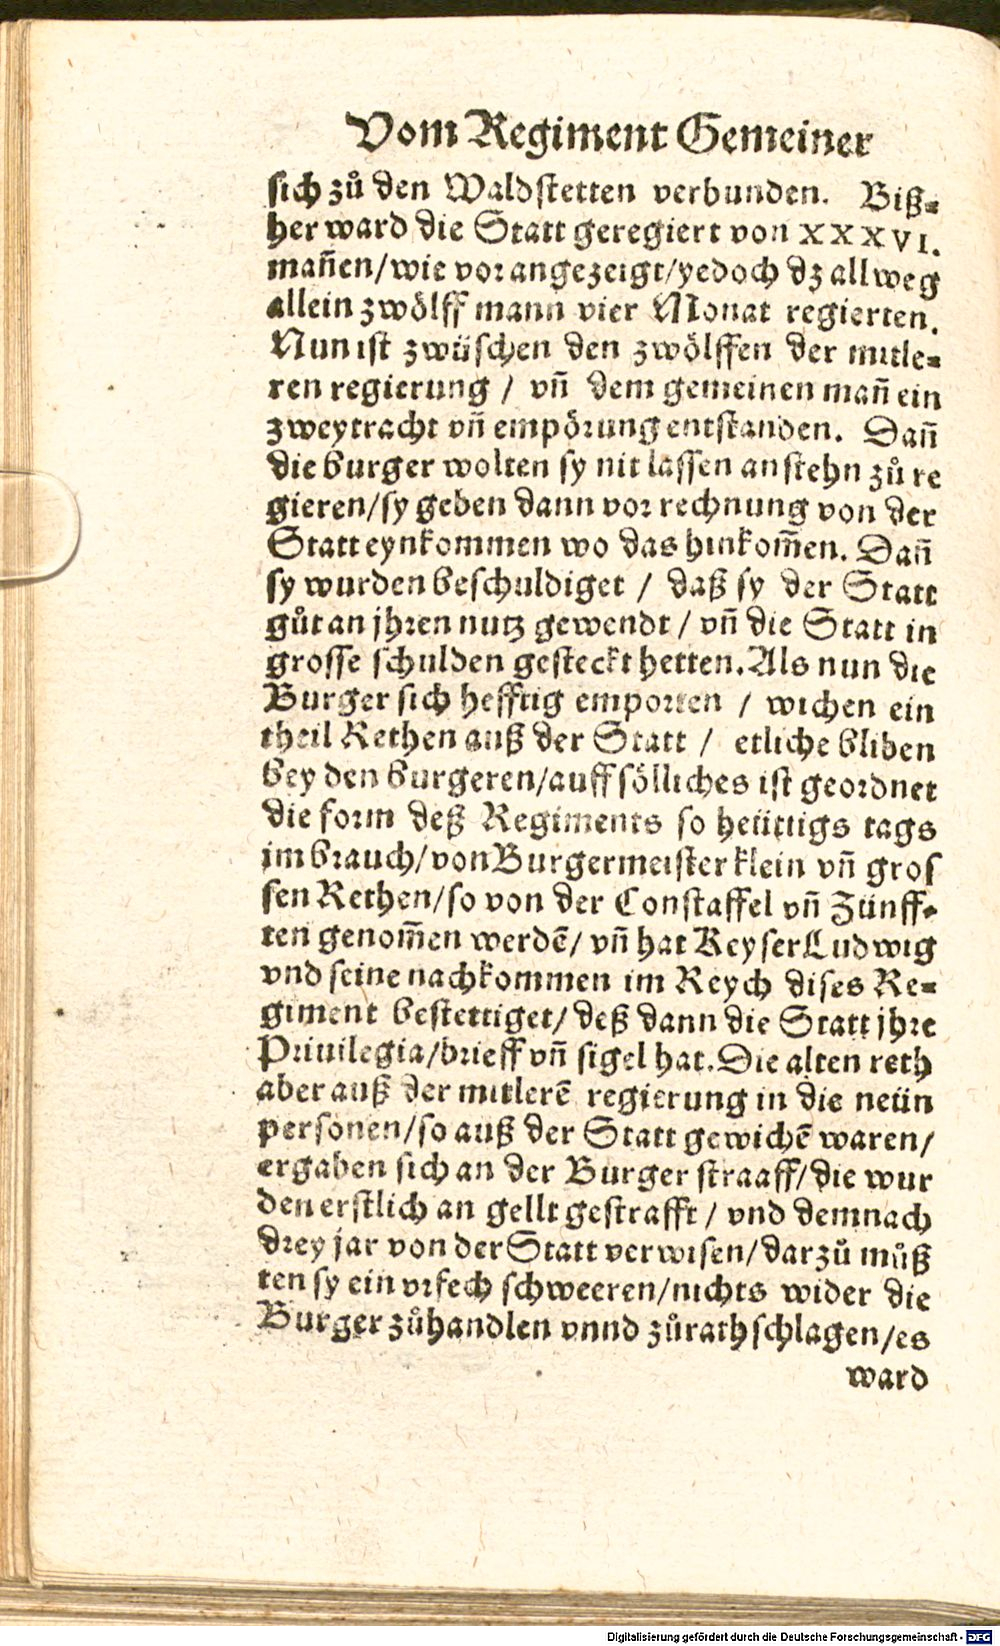 Vom Regiment Gemeiner
sich zů den Waldstetten verbunden. Biß-
her ward die Statt geregiert von XXXVI.
mañen/wie vor angezeigt/yedoch dz allweg
allein zwölff mann vier Monat regierten.
Nun ist zwüschen den zwölffen der mitle-
ren regierung / vñ dem gemeinen mañ ein
zweytracht vñ empörung entstanden. Dañ
die burger wolten sy nit lassen anstehn zů re
gieren/sy geben dann vor rechnung von der
Statt eynkommen wo das hinkom̃en. Dañ
sy wurden beschuldiget / daß sy der Statt
gůt an jhren nutz gewendt / vñ die Statt in
grosse schulden gesteckt hetten. Als nun die
Burger sich hefftig emporten / wichen ein
theil Rethen auß der Statt / etliche bliben
bey den burgeren/auff sölliches ist geordnet
die form deß Regiments so heüttigs tags
im brauch/von Burgermeister klein vñ gros
sen Rethen/so von der Constaffel vñ Zünff-
ten genom̃en werdẽ/ vñ hat Keyser Ludwig
vnd seine nachkommen im Reych dises Re-
giment bestettiget/ deß dann die Statt jhre
Priuilegia/brieff vñ sigel hat. Die alten reth
aber auß der mitlerẽ regierung in die neün
personen/so auß der Statt gewichẽ waren/
ergaben sich an der Burger straaff/die wur
den erstlich an gellt gestrafft / vnd demnach
drey jar von der Statt verwisen/darzů můß
ten sy ein vrfech schweeren/nichts wider die
Burger zůhandlen vnnd zůrathschlagen/es
ward
Digitalisierung gefördert durch die Deutsche Forschungsgemeinschaft - DFG